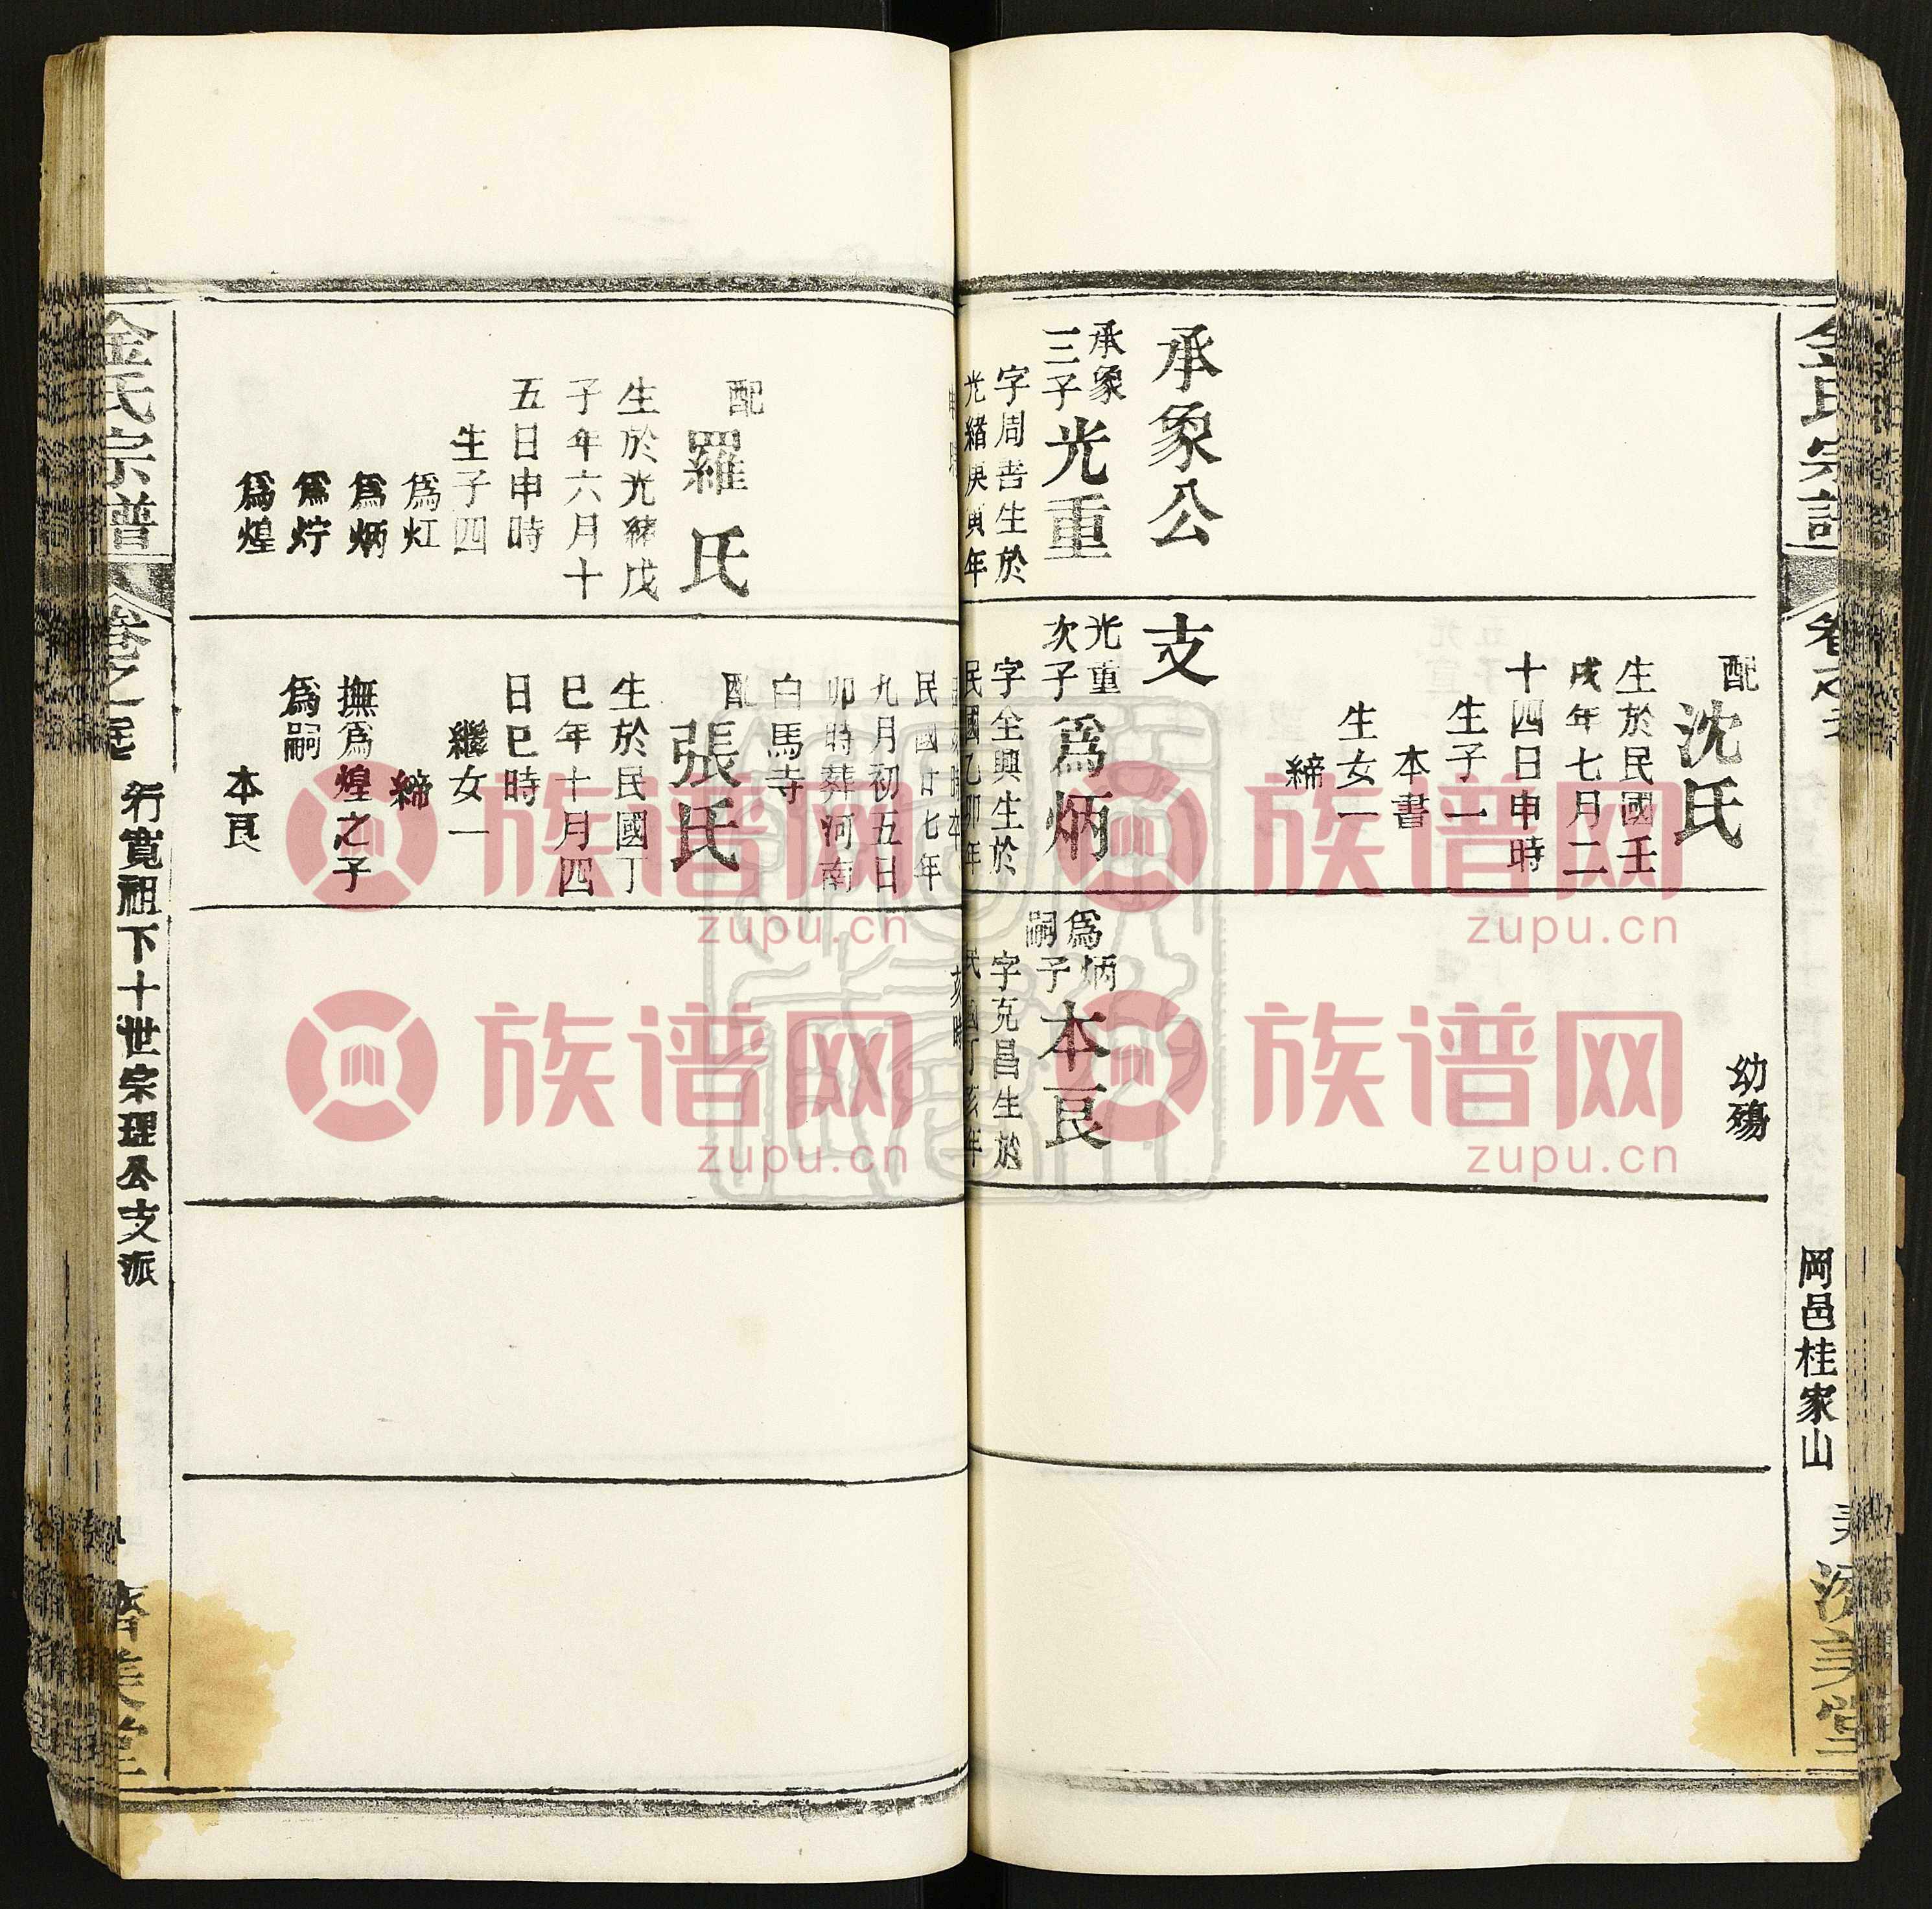 岡邑桂家山
配
沈氏
生於民國壬
戌年七月二
十四日申時
生子一
本書
生女一
締
幼殤
承象公
支
承象
三子
光重
字周書生於
光緒庚寅年
配
羅氏
生於光緒戊
子年六月十
五日申時
生子四
爲灴
爲炳
爲㷎
爲煌
光重
次子
爲炳
字全興生於
民國乙卯年
民國廿七年
九月初五日
卯時葬河南
白馬寺
配
張氏
生於民國丁
巳年十月四
日巳時
繼女一
締
撫爲煌之子
爲嗣
本良
爲炳
嗣子
本良
字克昌生於
民國丁亥年
亥時
金氏宗譜
行寬祖下十世宗理公支派
濟美堂
族谱网
zupu.cn
族谱网
zupu.cn
族谱网
zupu.cn
族谱网
zupu.cn